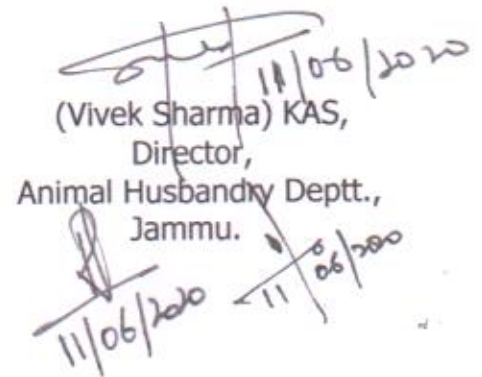 11/06/2020
(Vivek Sharma) KAS,
Director,
Animal Husbandry Deptt.,
Jammu.
11/06/2020
11/06/2020